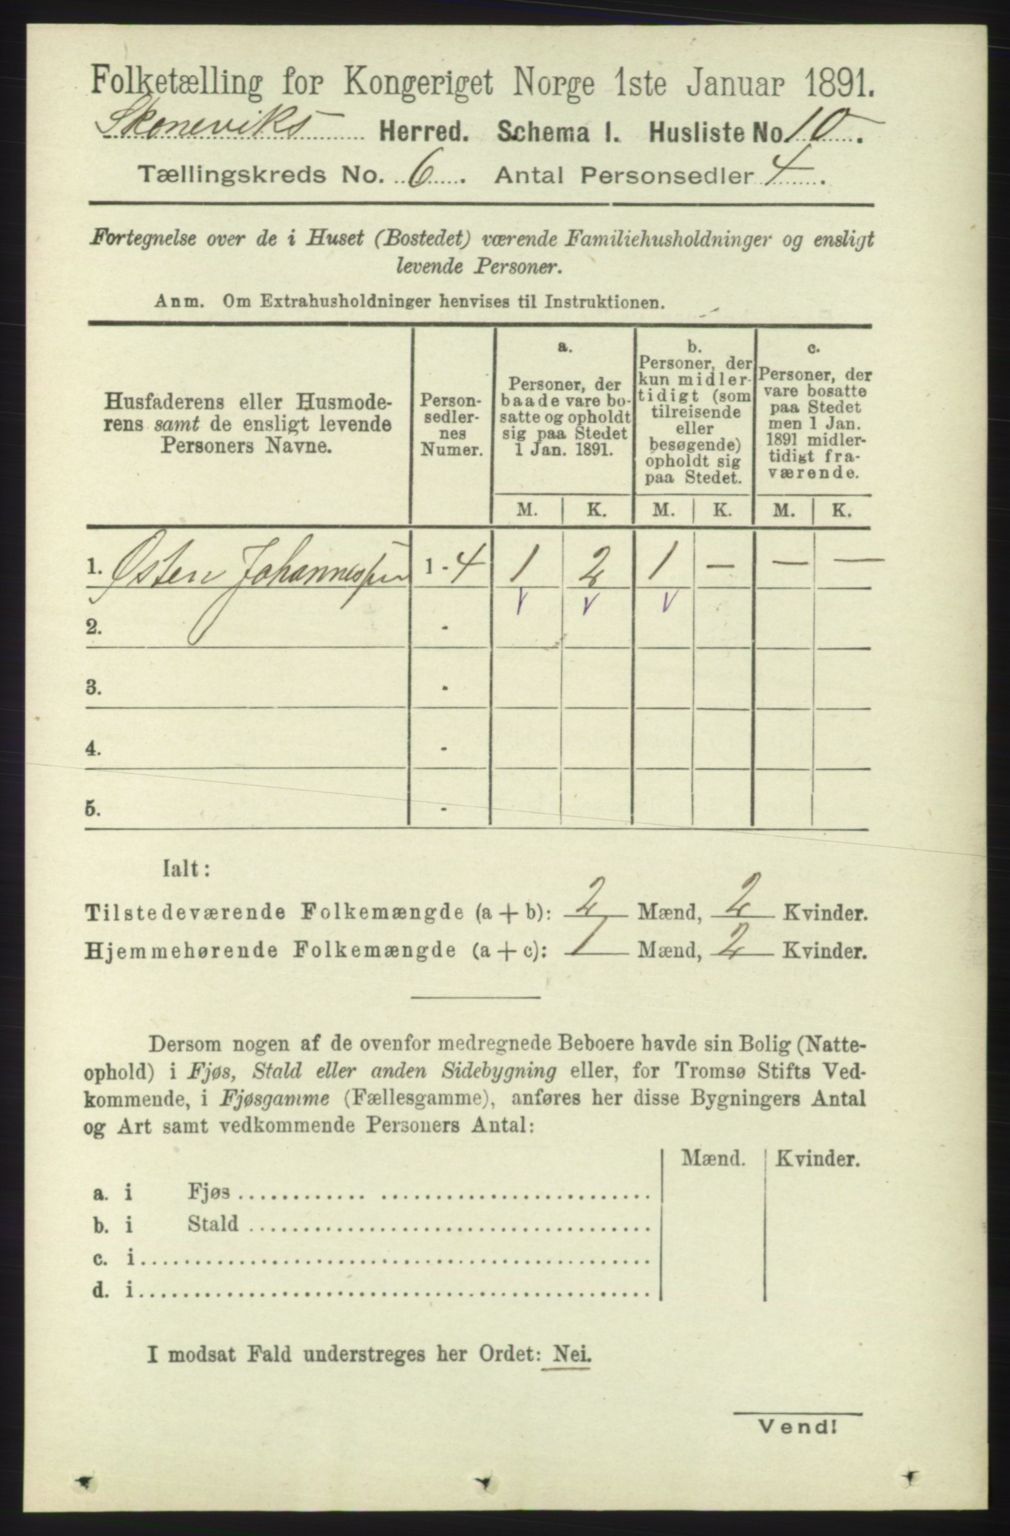 Folketælling for Kongeriget Norge 1ste Januar 1891.
Skoneviks Herred. Schema I. Husliste No. 10.
Tællingskreds No. 6. Antal Personsedler 4.
Fortegnelse over de i Huset (Bostedet) værende Familiehusholdninger og ensligt
levende Personer.
Anm. Om Extrahusholdninger henvises til Instruktionen.
Husfaderens eller Husmode-
rens samt de ensligt levende
Personers Navne.
Person-
sedler-
nes
Numer.
a.
Personer, der
baade vare bo-
satte og opholdt
sig paa Stedet
1 Jan. 1891.
b.
Personer, der
kun midler-
tidigt (som
tilreisende
eller
besøgende)
opholdt sig
paa Stedet.
c.
Personer, der
vare bosatte
paa Stedet
men 1 Jan.
1891 midler-
tidigt fra-
værende.
M. K. M. K. M. K.
1. Østen Johannessen 1-4 1 2 1 — — —
2. -
3. -
4. -
5. -
Ialt:
Tilstedeværende Folkemængde (a + b): 2 Mænd, 2 Kvinder.
Hjemmehørende Folkemængde (a + c): 1 Mænd, 2 Kvinder.
Dersom nogen af de ovenfor medregnede Beboere havde sin Bolig (Natte-
ophold) i Fjøs, Stald eller anden Sidebygning eller, for Tromsø Stifts Ved-
kommende, i Fjøsgamme (Fællesgamme), anføres her disse Bygningers Antal
og Art samt vedkommende Personers Antal:
Mænd. Kvinder.
a. i Fjøs
b. i Stald
c. i
d. i
I modsat Fald understreges her Ordet: Nei.
Vend!